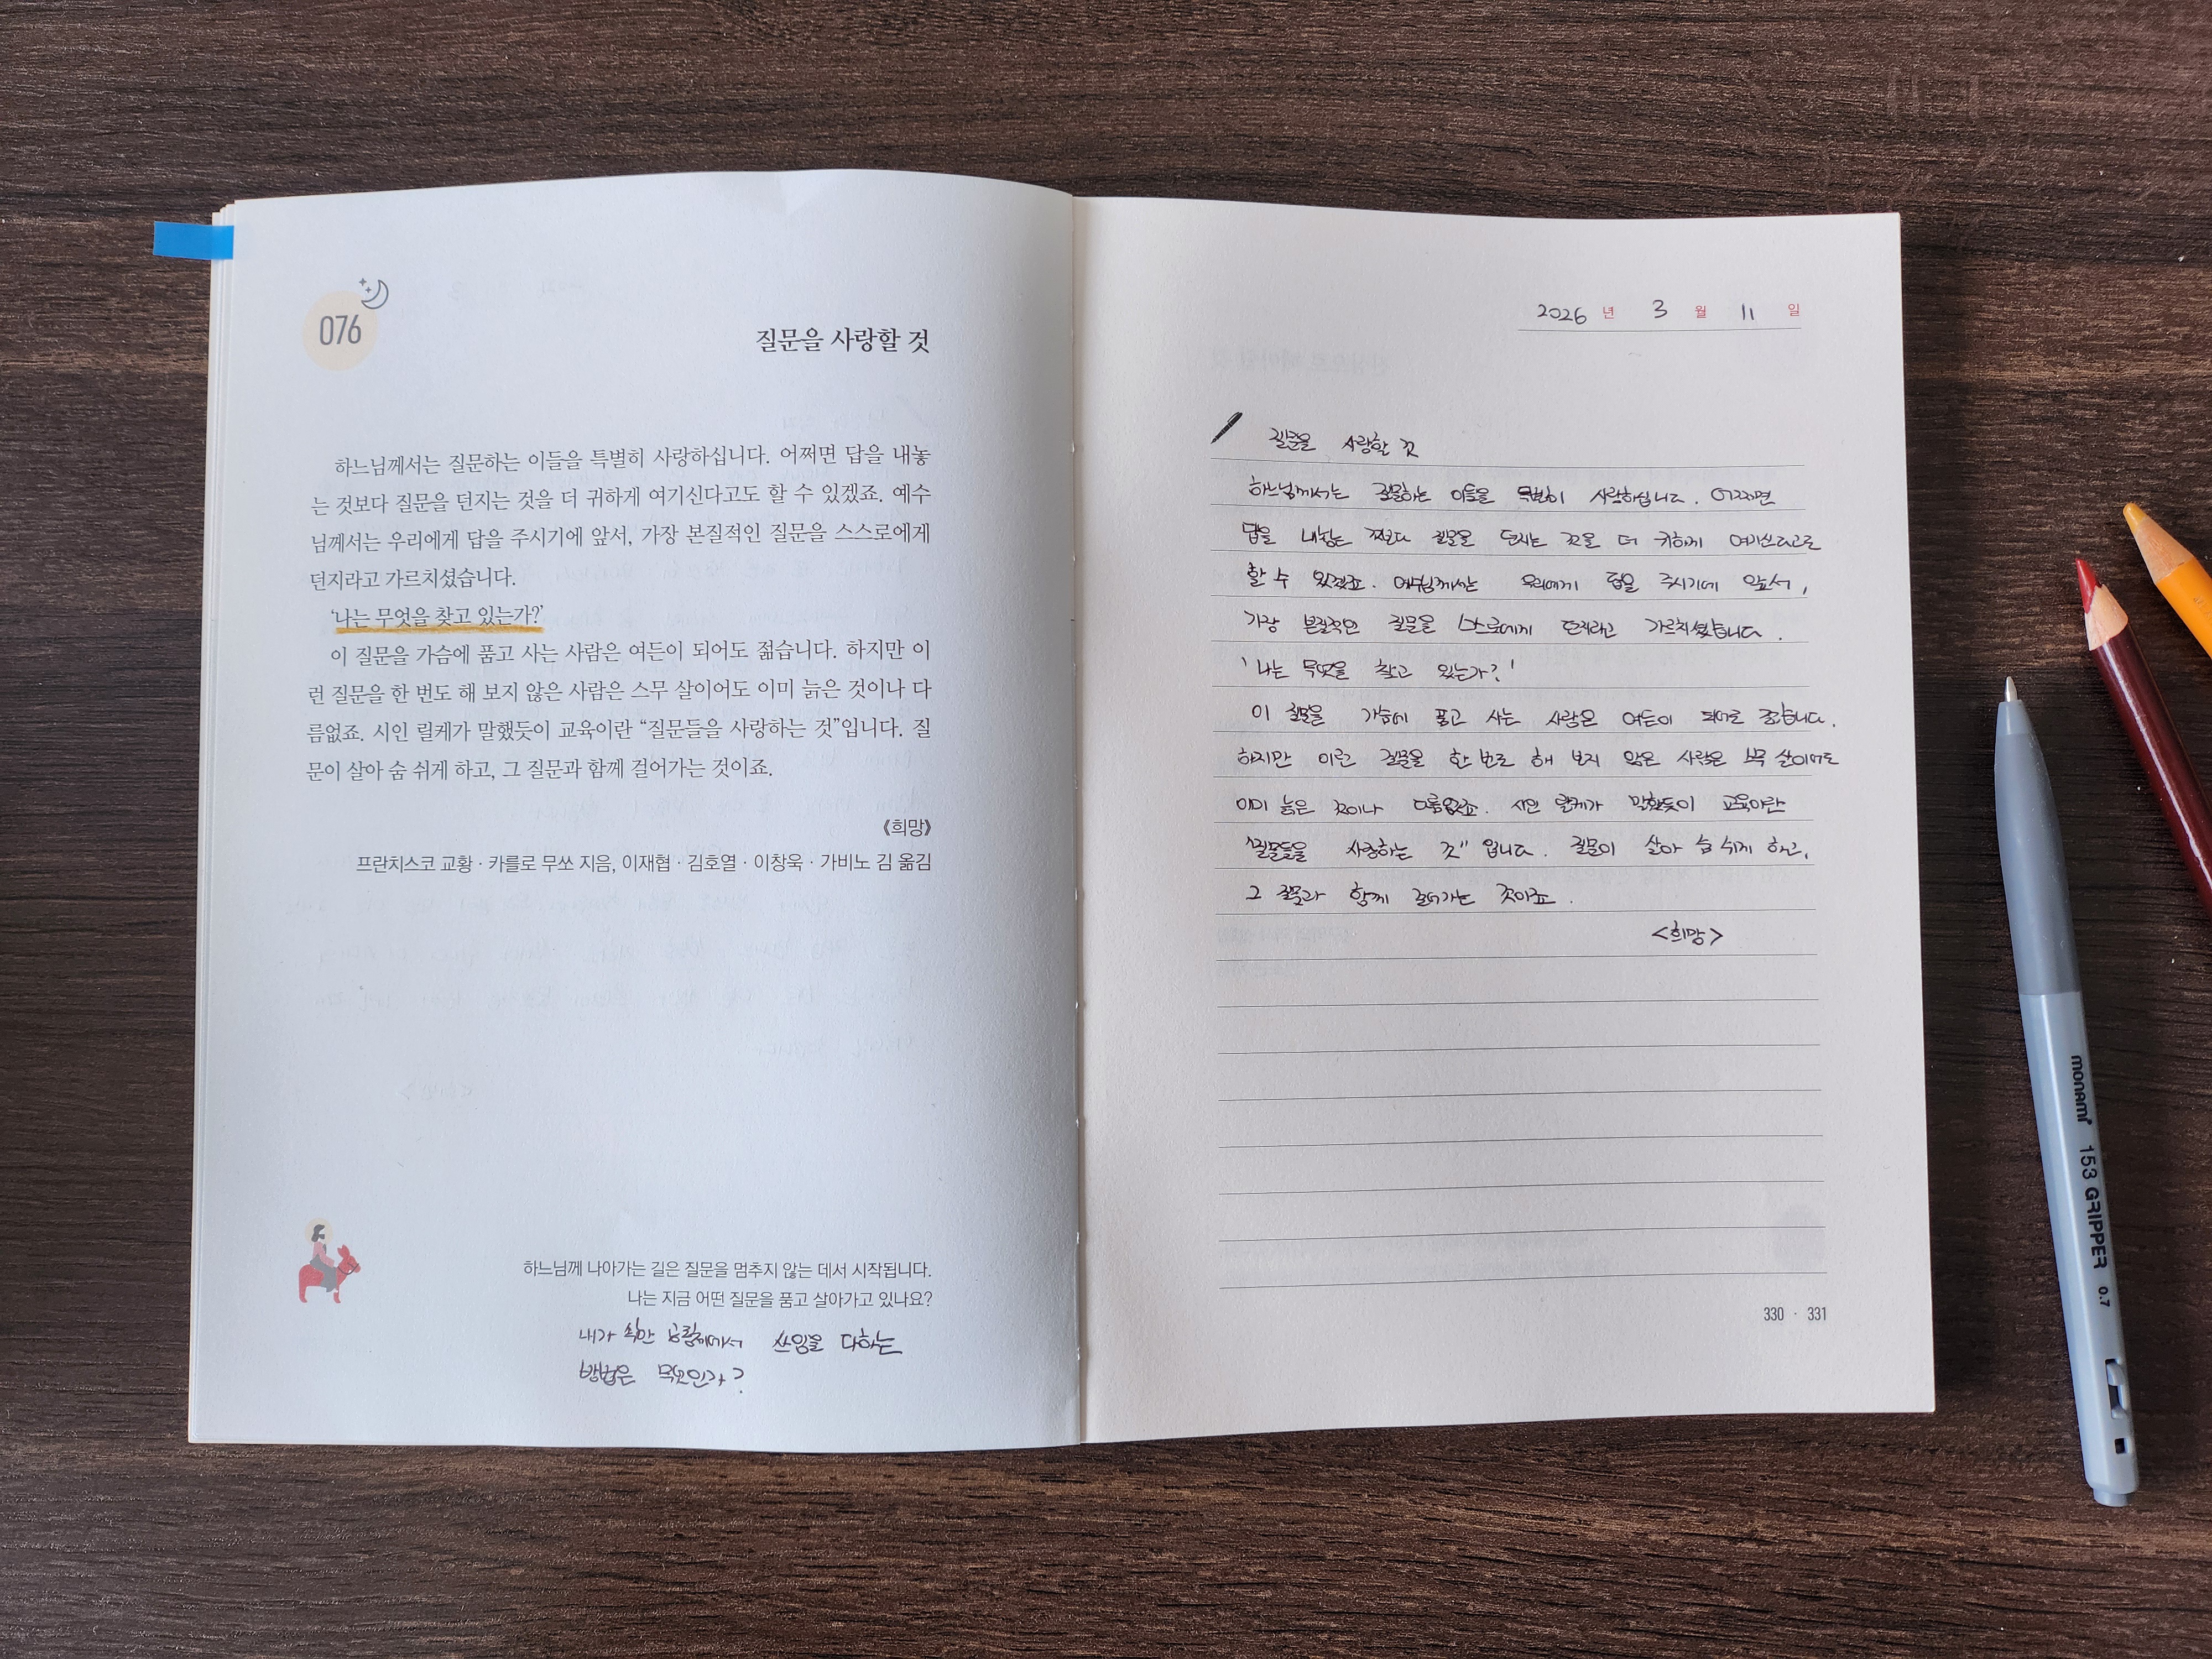 076
질문을 사랑할 것
하느님께서는 질문하는 이들을 특별히 사랑하십니다. 어쩌면 답을 내놓
는 것보다 질문을 던지는 것을 더 귀하게 여기신다고도 할 수 있겠죠. 예수
님께서는 우리에게 답을 주시기에 앞서, 가장 본질적인 질문을 스스로에게
던지라고 가르치셨습니다.
‘나는 무엇을 찾고 있는가?’
이 질문을 가슴에 품고 사는 사람은 여든이 되어도 젊습니다. 하지만 이
런 질문을 한 번도 해 보지 않은 사람은 스무 살이어도 이미 늙은 것이나 다
름없죠. 시인 릴케가 말했듯이 교육이란 “질문들을 사랑하는 것”입니다. 질
문이 살아 숨 쉬게 하고, 그 질문과 함께 걸어가는 것이죠.
《희망》
프란치스코 교황 · 카를로 무쏘 지음, 이재협 · 김호열 · 이창욱 · 가비노 김 옮김
하느님께 나아가는 길은 질문을 멈추지 않는 데서 시작됩니다.
나는 지금 어떤 질문을 품고 살아가고 있나요?
내가 속한 공동체에서 쓰임을 다하는
방법은 무엇인가?
2026 년 3 월 11 일
질문을 사랑할 것
하느님께서는 질문하는 이들을 특별히 사랑하십니다. 어쩌면
답을 내놓는 것보다 질문을 던지는 것을 더 귀하게 여기신다고도
할 수 있겠죠. 예수님께서는 우리에게 답을 주시기에 앞서,
가장 본질적인 질문을 스스로에게 던지라고 가르치셨습니다.
'나는 무엇을 찾고 있는가?'
이 질문을 가슴에 품고 사는 사람은 여든이 되어도 젊습니다.
하지만 이런 질문을 한 번도 해 보지 않은 사람은 스무 살이어도
이미 늙은 것이나 다름없죠. 시인 릴케가 말했듯이 교육이란
"질문들을 사랑하는 것"입니다. 질문이 살아 숨 쉬게 하고,
그 질문과 함께 걸어가는 것이죠.
<희망>
330 · 331
monami 153 GRIPPER 0.7